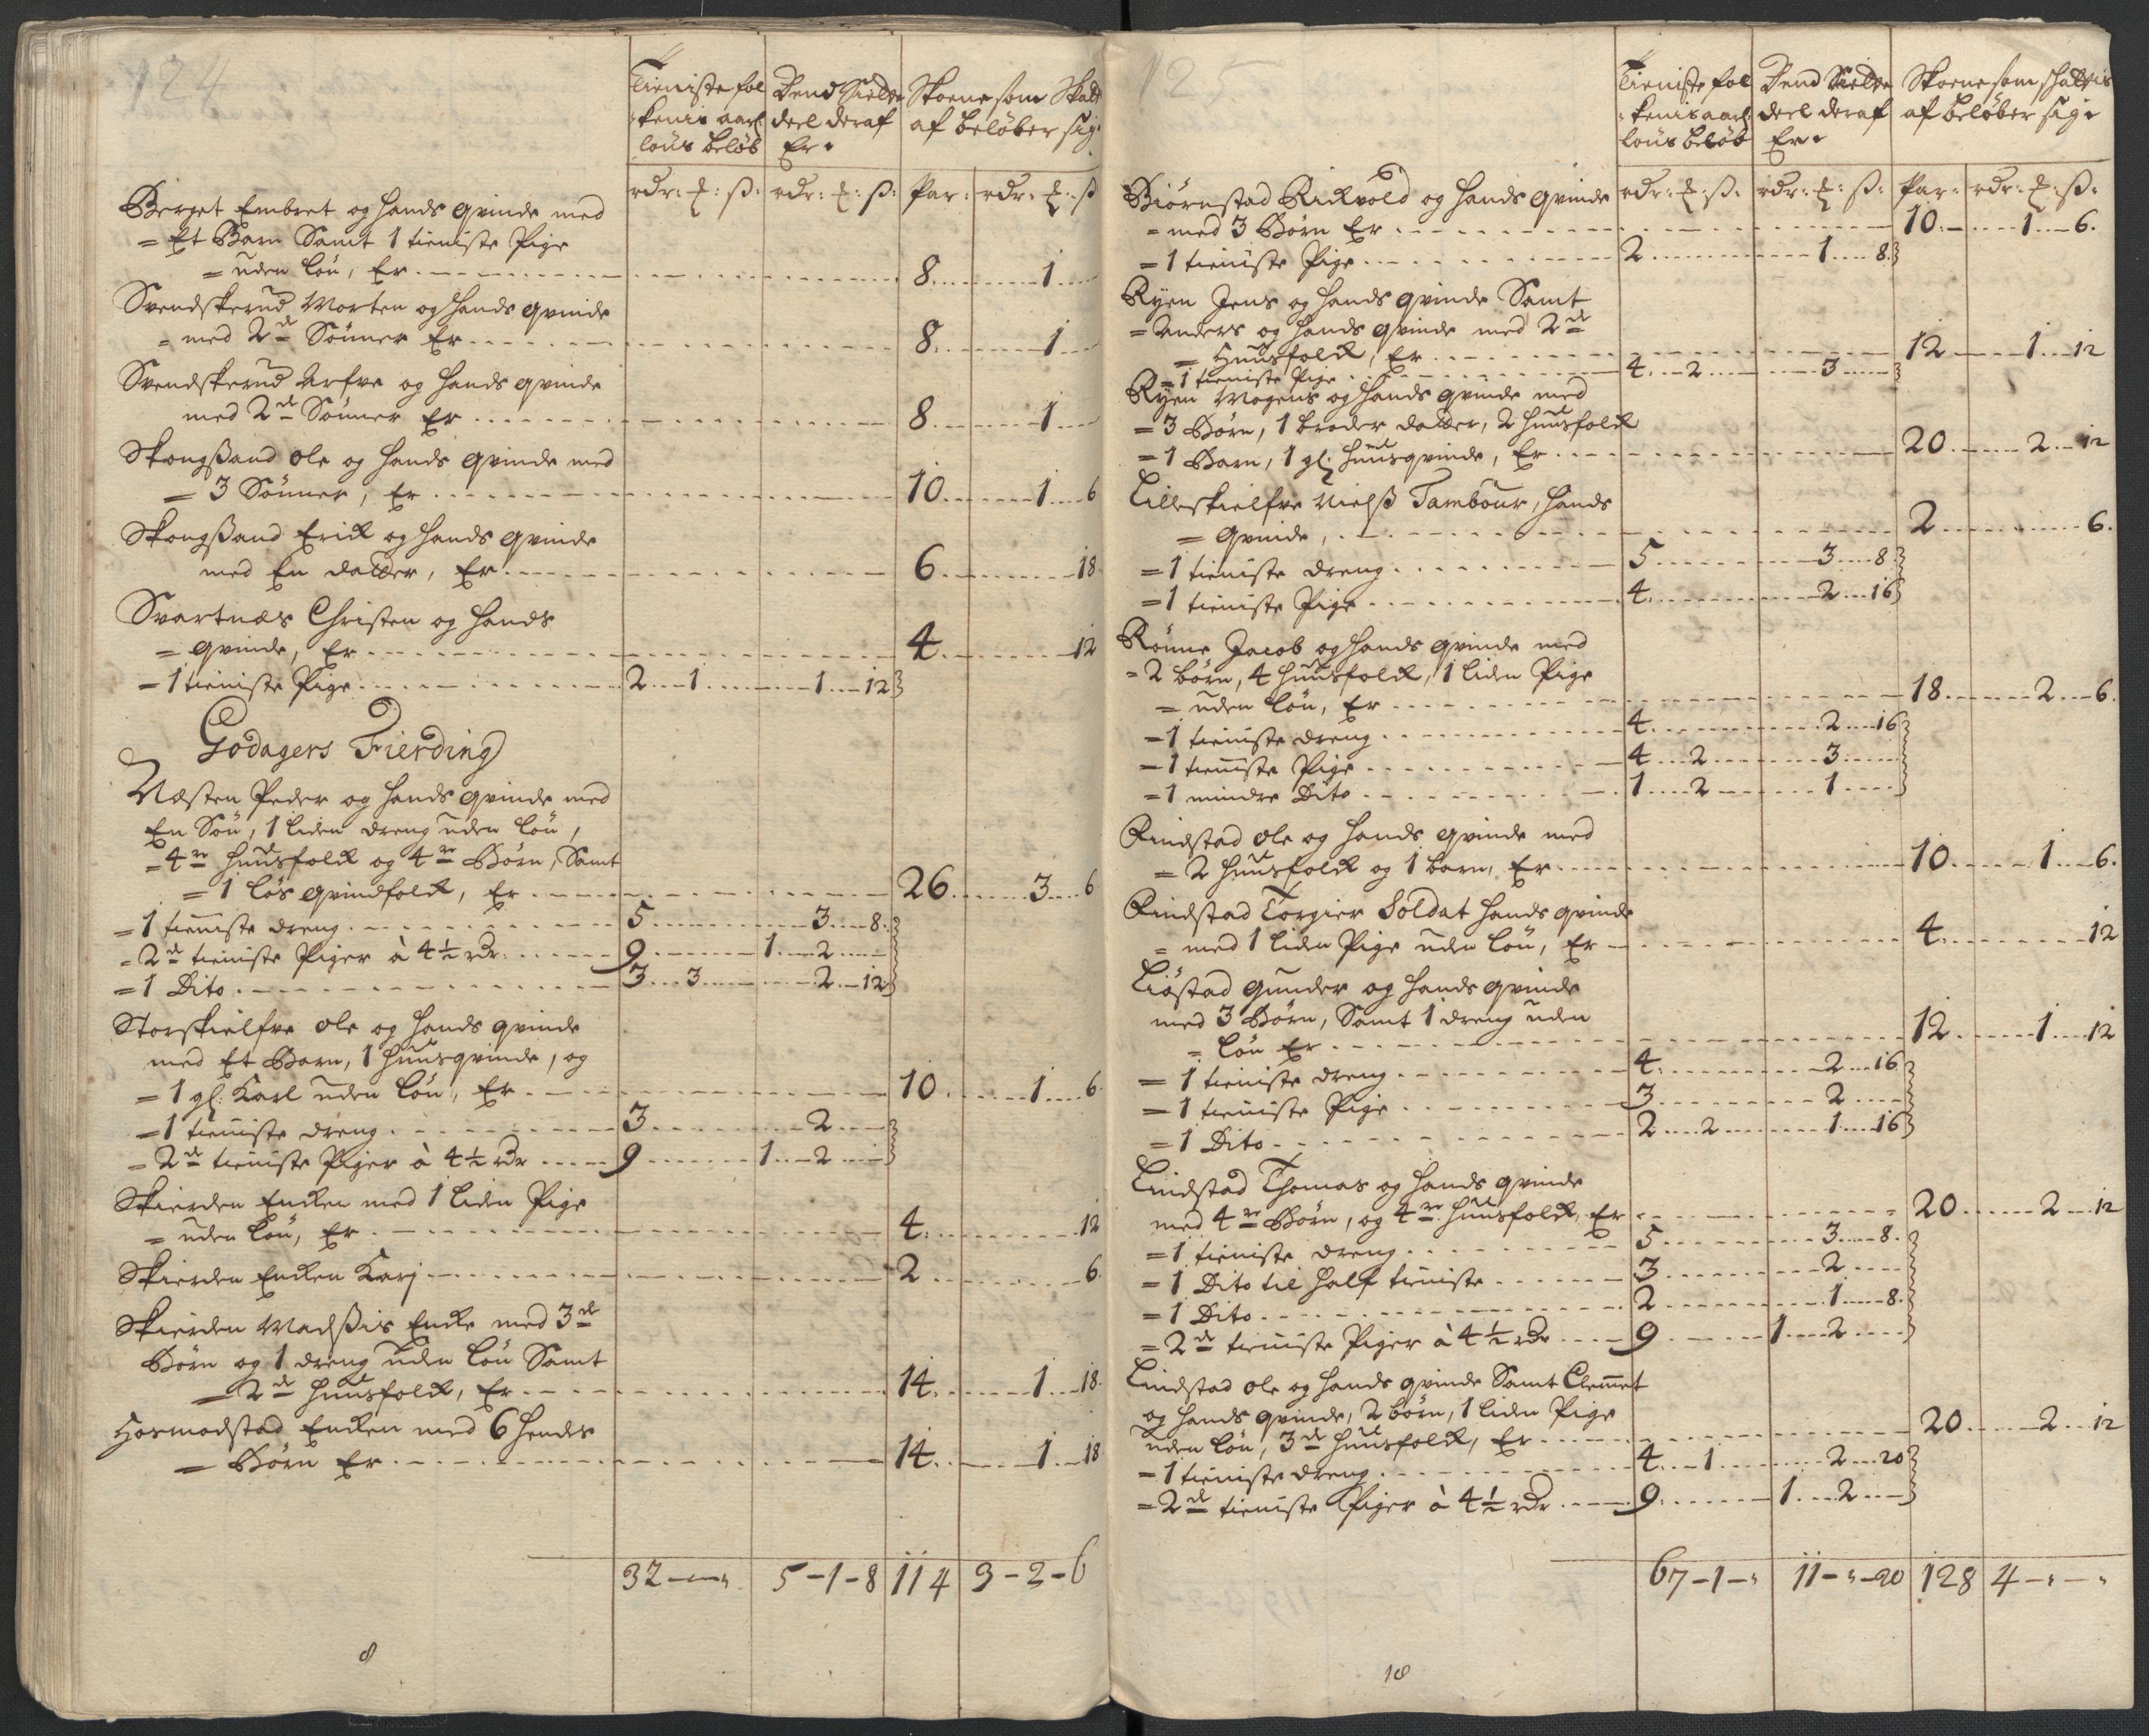 124
Tieniste fol
kenis aarl:
löns beløb
Dend Siette
deel deraf
Er.
Skoene som Skatt
af beløber sig.
rdr: ƺ: ß: rdr: ƺ: ß: Par: rdr: ƺ: ß
Berget Embret og hands qvinde med
= Et Barn Samt 1 tieniste Pige
= uden Løn, Er 8 1
Svendskerud Morten og hands qvinde
= med 2de Sønner Er 8 1
Svendskerud Arfve og hands qvinde
med 2de Sønner Er 8 1
Skougßand Ole og hands qvinde med
= 3 Sønner, Er 10 1 6
Skougßand Erick og hands qvinde
med En datter, Er 6 18
Svartnæs Christen og hands
= qvinde, Er 4 12
= 1 tieniste Pige 2 1 1 12
Godagers Fierding
Næsten Peder og hands qvinde med
En Søn, 1 liden dreng uden løn,
= 4re huusfolck og 4re Børn, Samt
= 1 løs qvindfolck, Er 26 3 6
= 1 tieniste dreng 5 3 8
= 2de tieniste Piger à 4½ rdr: 9 1 2
= 1 Dito 3 3 2 12
Storskielfve Ole og hands qvinde
med Et Barn, 1 huusqvinde, og
= 1 gl: Karl uden løn, Er 10 1 6
= 1 tieniste dreng 3 2
= 2de tieniste Piger à 4½ rdr 9 1 2
Skierden Encken med 1 liden Pige
= uden løn, Er 4 12
Skierden Encken Karj 2 6
Skierden Madßis Encke med 3de
Børn og 1 dreng uden løn Samt
= 2de huusfolck, Er 14 1 18
Hosmodstad Encken med 6 hendes
= Børn Er 14 1 18
32 - - 5-1-8 114 3-2-6
8
125
Tieniste fol
kenis aarl:
löns beløb
Dend Siette
deel deraf
Er.
Skoene som schattis
af beløber sig.
rdr: ƺ: ß: rdr: ƺ: ß: Par: rdr: ƺ: ß:
Biørnstad Rickvold og hands qvinde
= med 3 Børn Er 10 1 6.
= 1 tieniste Pige 2 1 8
Ryen Jens og hands qvinde Samt
= Anders og hands qvinde med 2de
= Huusfolck, Er 12 1 12
= 1 tieniste Pige 4 2 3
Ryen Mogens og hands qvinde med
= 3 Børn, 1 broder datter, 2 huusfolck
= 1 Barn, 1 gl: huusqvinde, Er 20 2 12
Lilleskielfve Nielß Tambour, hands
= qvinde, 2 6.
= 1 tieniste dreng 5 3 8
= 1 tieniste Pige 4 2 16
Rønne Jacob og hands qvinde med
= 2 børn, 4 huusfolck, 1 liden Pige
= uden løn, Er 18 2 6.
= 1 tieniste dreng 4 2 16
= 1 tieniste Pige 4 2 3
= 1 mindre Dito 1 2 1
Rindstad Ole og hands qvinde med
= 2 huusfolck og 1 barn, Er 10 1 6.
Rindstad Torgier Soldat hands qvinde
= med 1 liden Pige uden løn, Er 4 12
Liøstad Gunder og hands qvinde
med 3 Børn, Samt 1 dreng uden
= løn Er 12 1 12
= 1 tieniste dreng 4 2 16
= 1 tieniste Pige 3 2
= 1 Dito 2 2 1 16
Lindstad Thomas og hands qvinde
med 4re Børn, og 4re huusfolck, Er 20 2 12
= 1 tieniste dreng 5 3 8.
= 1 Dito til half tieniste 3 2
= 1 Dito 2 1 8.
= 2de tieniste Piger à 4½ rdr 9 1 2
Lindstad Ole og hands qvinde Samt Clemmet
og hands qvinde, 2 børn, 1 liden Pige
uden løn, 3de huusfolck, Er 20 2 12
= 1 tieniste dreng 4 1 2 20
= 2de tieniste Piger à 4½ rdr 9 1 2
67-1- 11- -20 128 4 - -
10